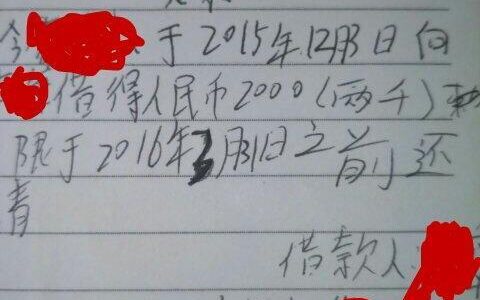 今 于2015年12月3日向
借得人民币2000(两千)
限于2016年3月31日之前还
青
借款人: